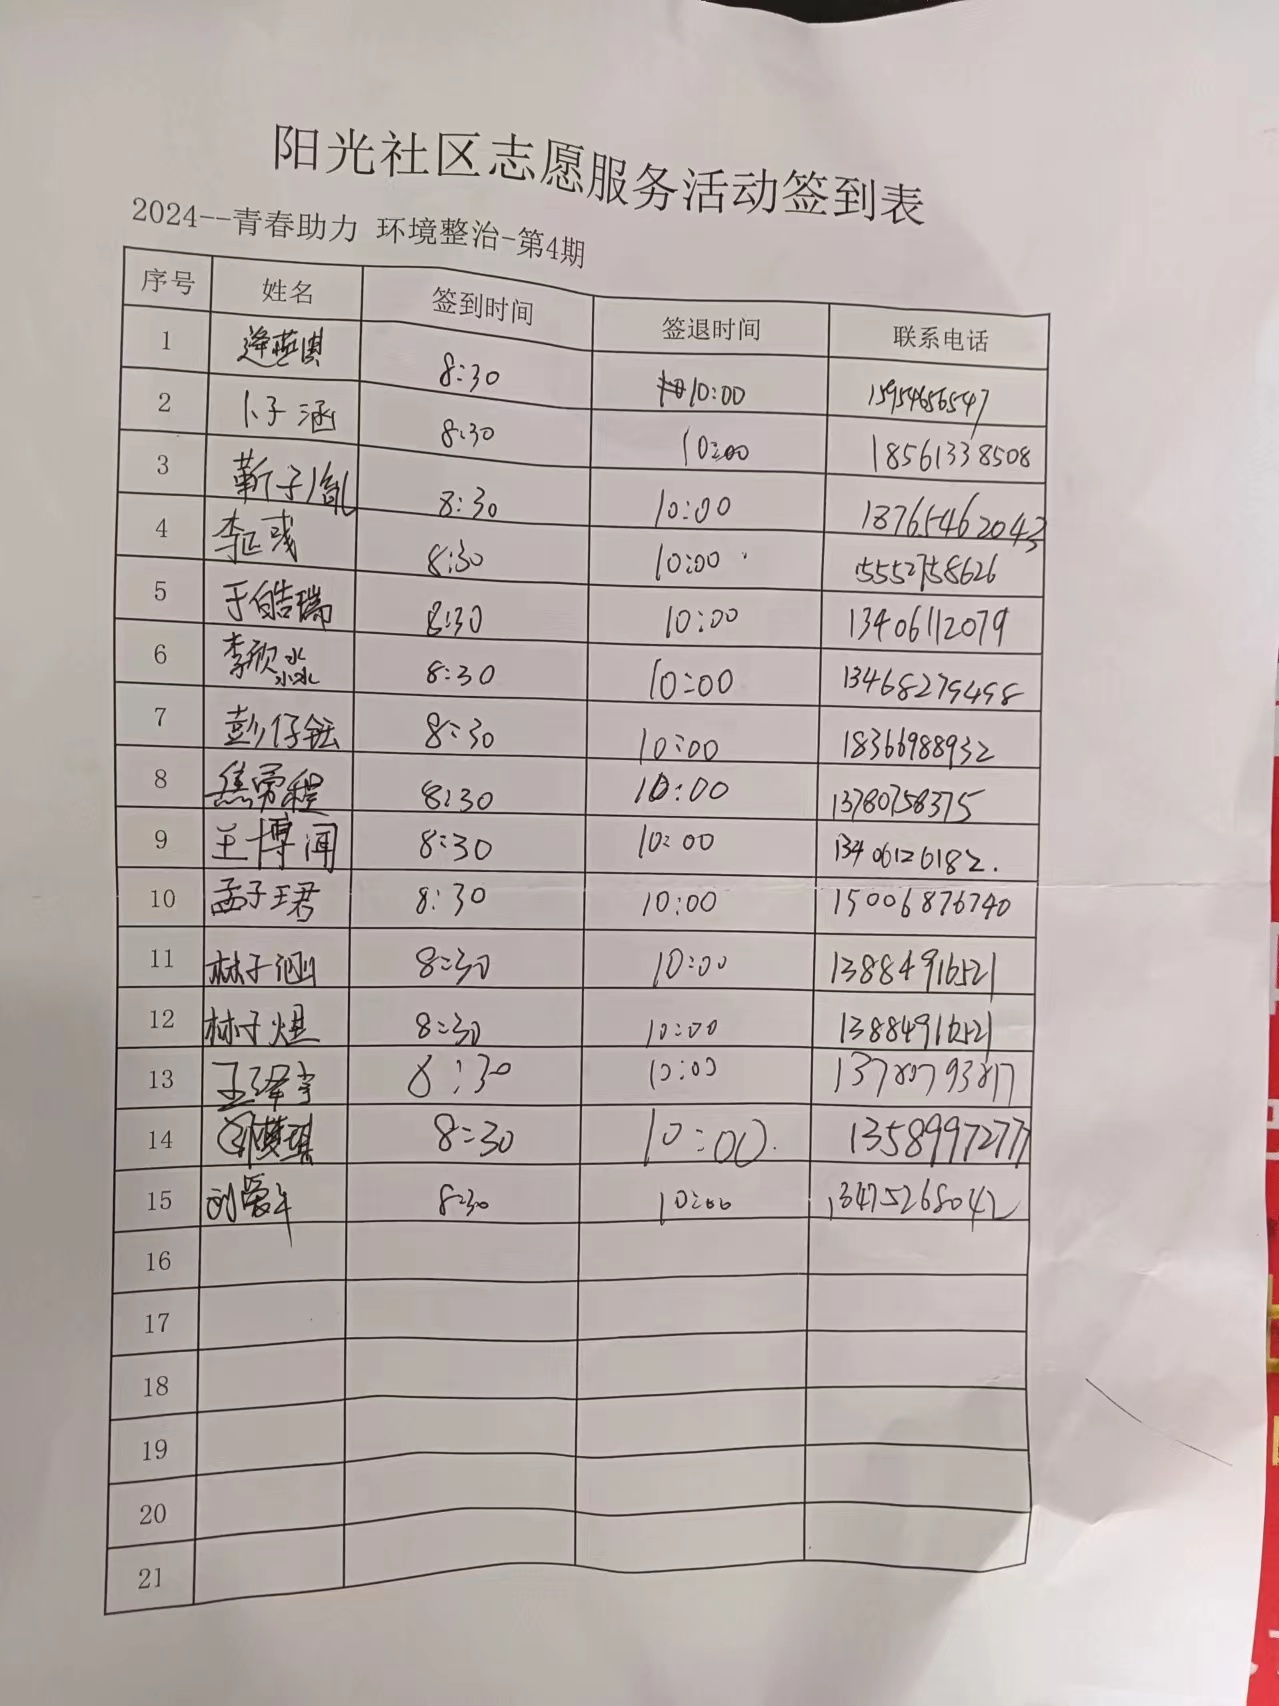 阳光社区志愿服务活动签到表
2024--青春助力 环境整治-第4期
序号 姓名 签到时间 签退时间 联系电话
1 8:30 10:00 15954656547
2 卜子涵 8:30 10:00 18561338508
3 靳子胤 8:30 10:00 18765462043
4 李彧 8:30 10:00 15552758626
5 于皓瑞 8:30 10:00 13406112079
6 李欣淼 8:30 10:00 13468279498
7 彭仔钰 8:30 10:00 18366988932
8 焦裔程 8:30 10:00 13780758375
9 王博闻 8:30 10:00 13406126182.
10 孟子珺 8:30 10:00 15006876740
11 林子涵 8:30 10:00 13884916521
12 林子煜 8:30 10:00 13884916521
13 王泽宇 8:30 10:00 13780793817
14 8:30 10:00. 13589972777
15 8:30 10:00 13475268042
16
17
18
19
20
21